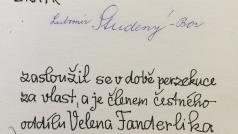 Lubomír Studený-Bor
zasloužil se v době perzekuce
za vlast, a je členem čestného
oddílu Velena Fanderlika